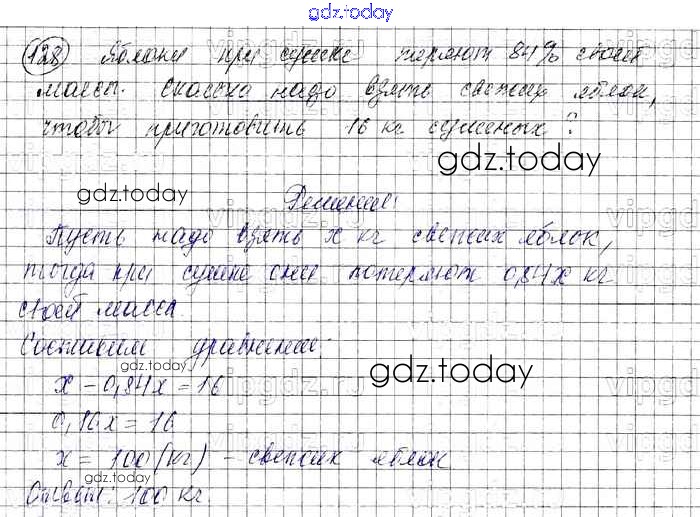 gdz.today
128 Яблоки при сушке теряют 84% своей
массы. Сколько надо взять свежих яблок,
чтобы приготовить 16 кг сушеных?
gdz.today
gdz.today
Решение:
Пусть надо взять x кг свежих яблок,
тогда при сушке они потеряют 0,84x кг
своей массы.
Составим уравнение:
gdz.today
gdz.today
x - 0,84x = 16
0,16x = 16
x = 100 (кг) - свежих яблок
gdz.today
Ответ: 100 кг.